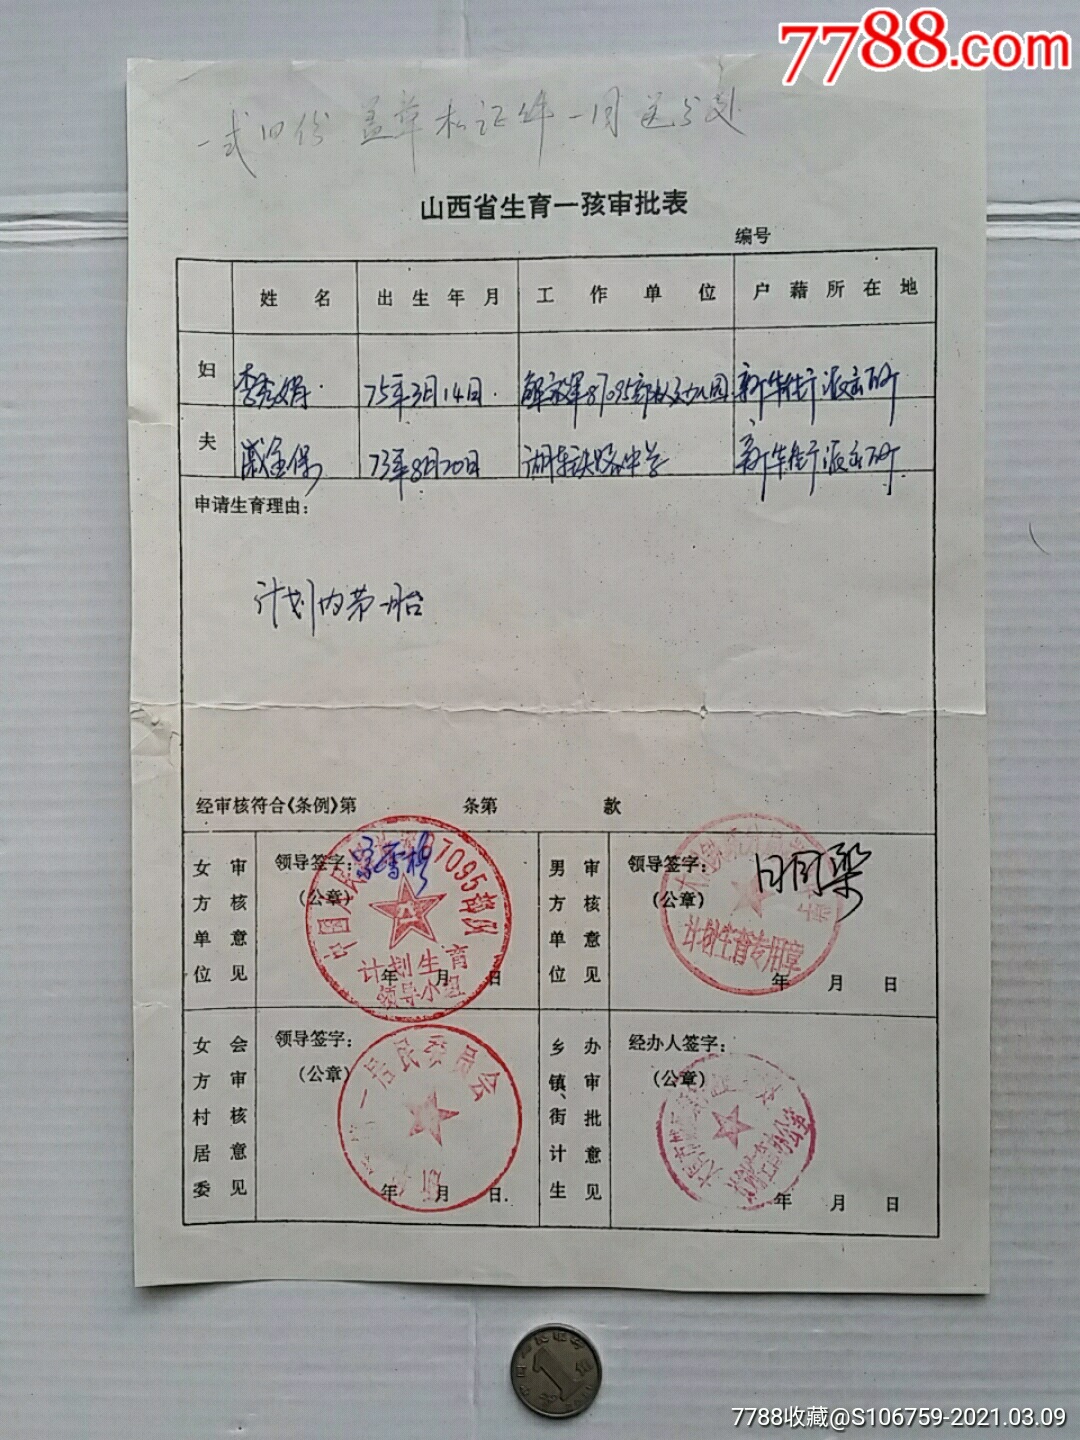 7788.com
一式四份 盖章和证件一同送分处
山西省生育一孩审批表
编号
姓名 出生年月 工作单位 户藉所在地
妇 李秀娟 75年3月14日 解放军87095部队幼儿园 新华街派出所
夫 戚金保 73年8月20日 湖东铁路中学 新华街派出所
申请生育理由：
计划内第一胎
经审核符合《条例》第 条第 款
女方单位审核意见 领导签字：
（公章）
中国人民解放军87095部队
计划生育
领导小组
年 月 日
男方单位审核意见 领导签字：
（公章）
计划生育专用章
年 月 日
女方村居委会审核意见 领导签字：
（公章）
一居民委员会
年 月 日
乡镇、街计生办审批意见 经办人签字：
（公章）
年 月 日
7788收藏@S106759-2021.03.09